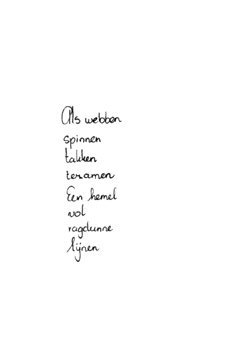 Als webben
spinnen
takken
tezamen
Een hemel
vol
ragdunne
lijnen